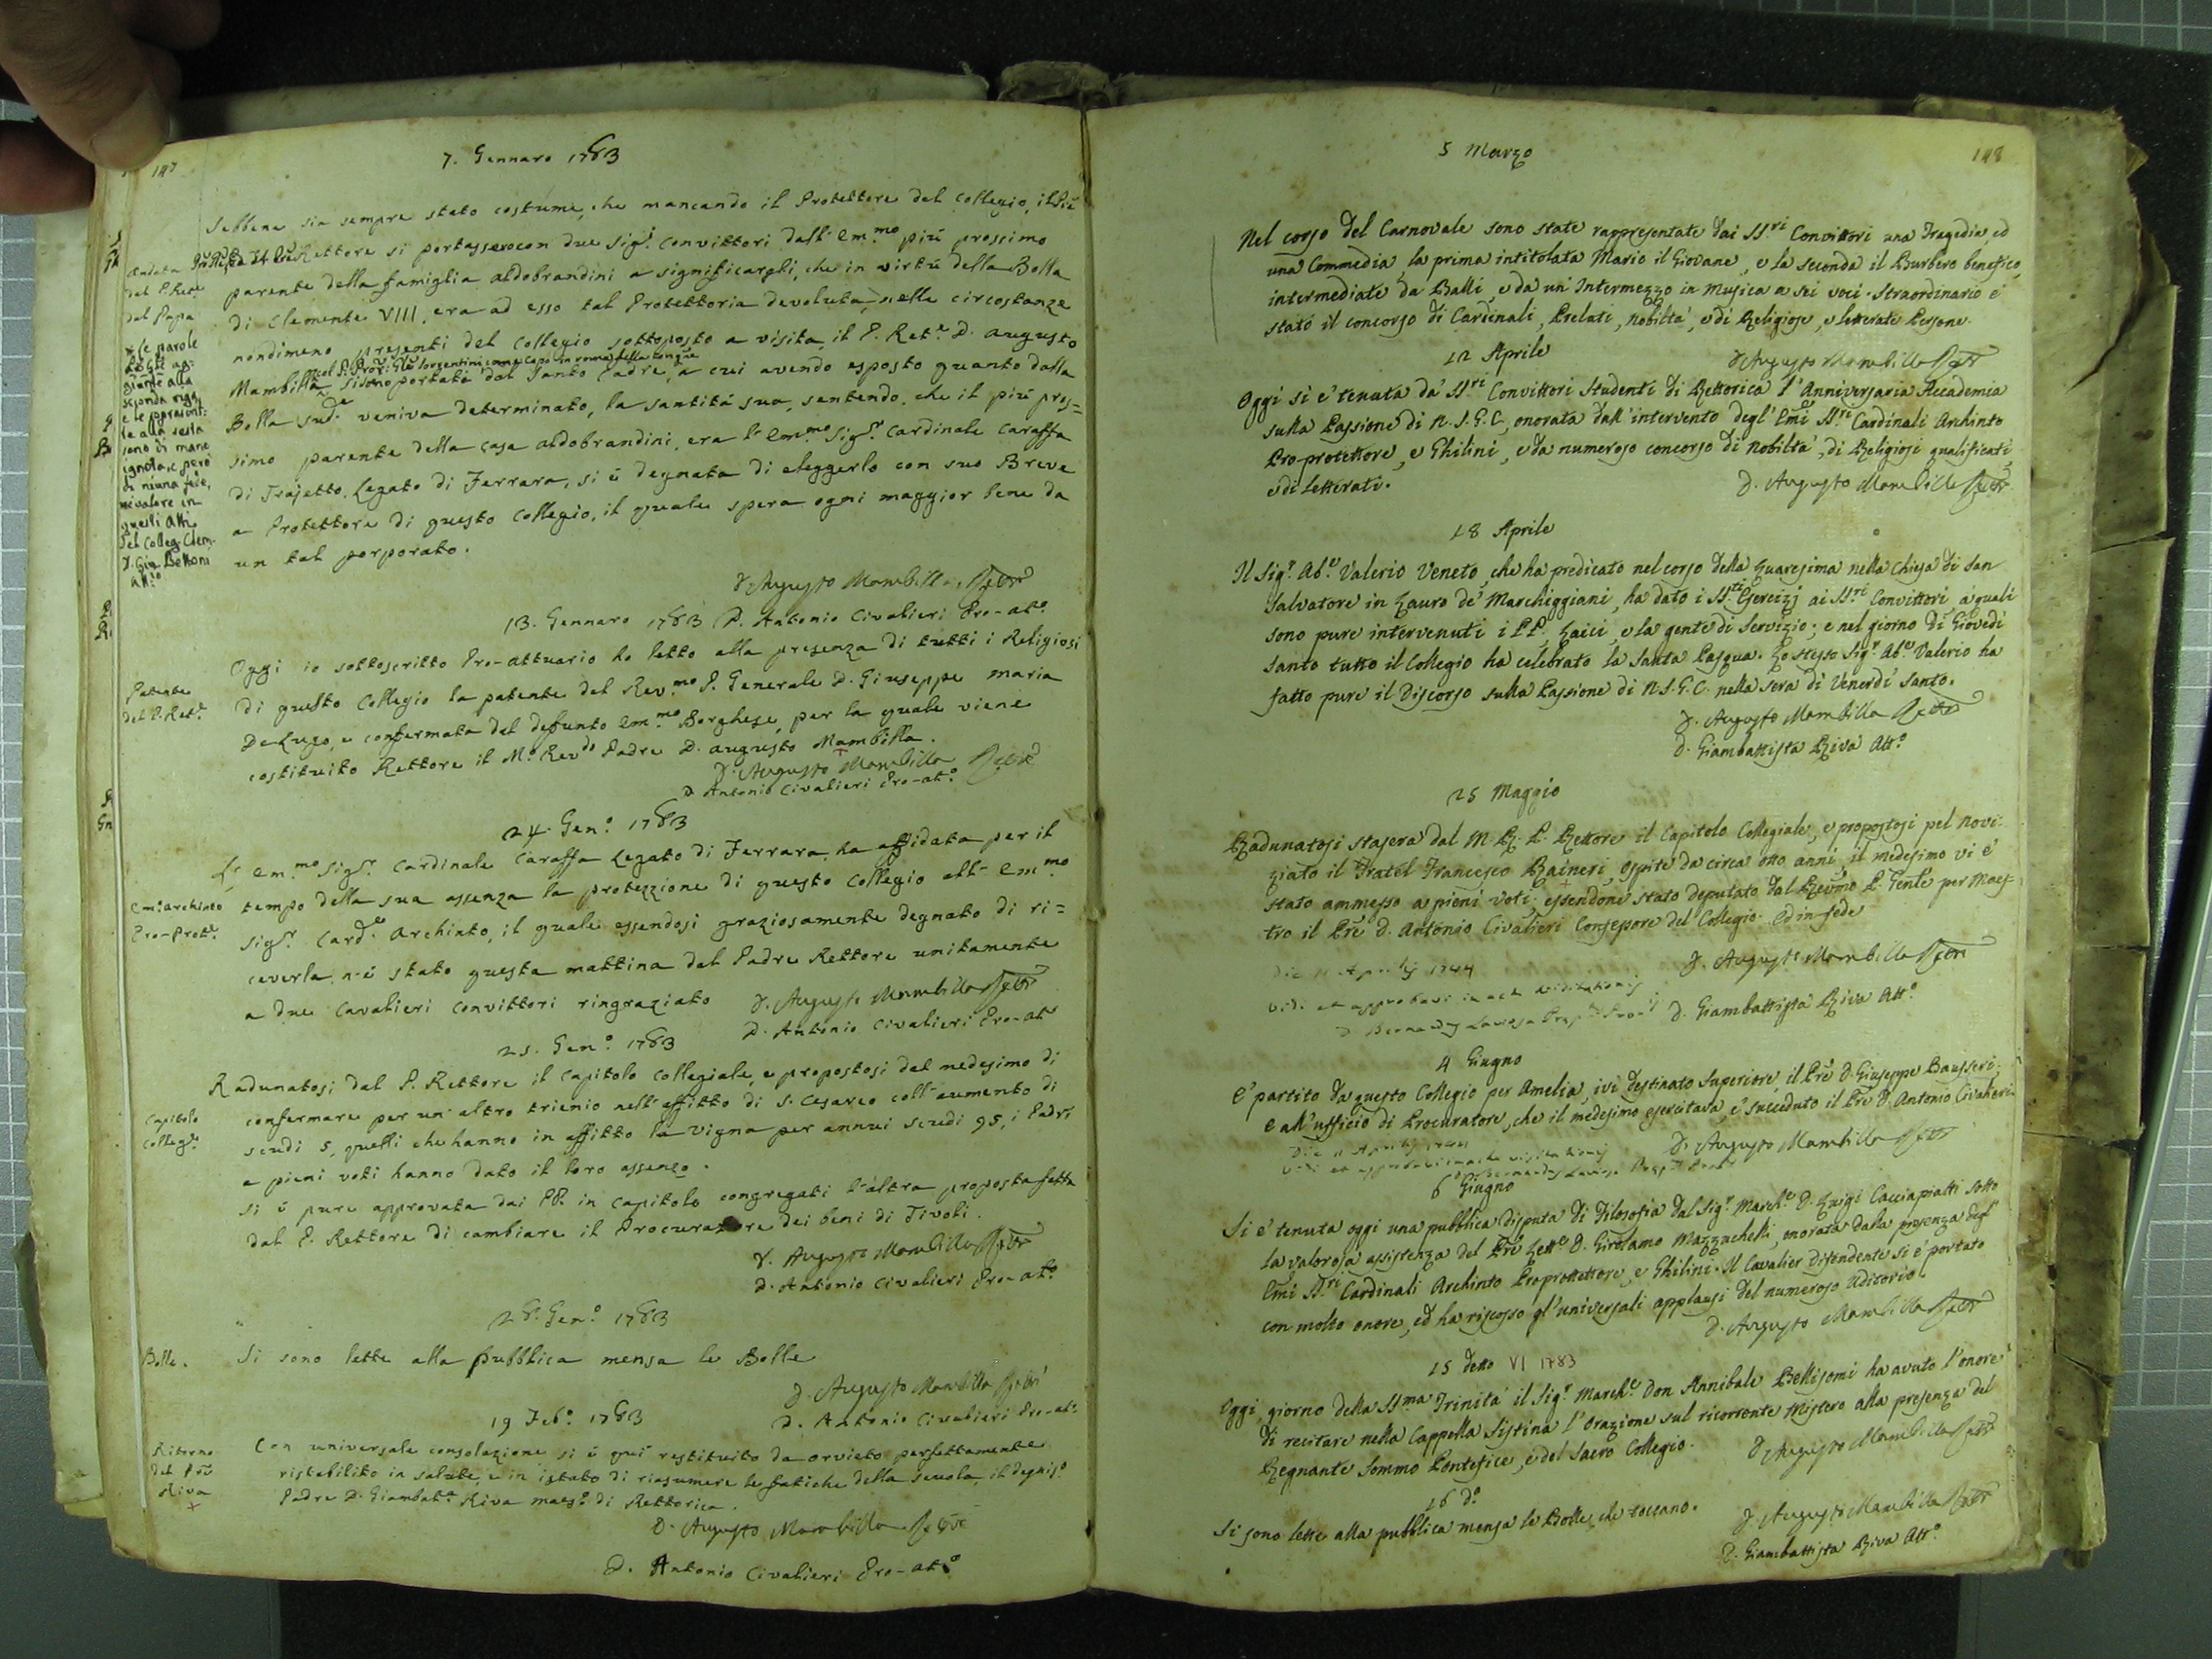 147
7. Gennaro 1783
Sebbene sia sempre stato costume, che mancando il Protettore del Collegio, il Più
Rettore si portasse con due Sig.i Convittori dall' Em.mo più prossimo
parente della famiglia Aldobrandini a significargli, che in virtù della Bolla
di Clemente VIII, era ad esso tal Protettoria devoluta, nelle circostanze
nondimeno presenti del Collegio sottoposto a visita, il P. Ret.e D. Augusto
Mambilla portati dal Santo Padre, a cui avendo esposto quanto dalla
Bolla sud.e veniva determinato, la santità sua, sentendo, che il più pros=
simo parente della casa Aldobrandini, era l' Em.mo Sig.r Cardinale Caraffa
di Trajetto, Legato di Ferrara, si è degnata di eleggerlo con suo Breve
a Protettore di questo Collegio, il quale spera ogni maggior bene da
un tal porporato.
Andata
del P. Ret.e
dal Papa
le parole
aggiunte alla
seconda riga,
e le
alla sesta
sono di mano
ignota, e però
di niuna fede,
ne valore in
questi Atti
del Colleg. Clem.
D. Gia. Bettoni
Att.o
D. Augusto Mambilla Rettre
D. Antonio Civalieri Pro-at.o
13. Gennaro 1783
Oggi io sottoscritto Pro-attuario ho letto alla presenza di tutti i Religiosi
di questo Collegio la patente del Rev.mo P. Generale D. Giuseppe Maria
De Lugo, e confermata dal defunto Em.mo Borghese, per la quale viene
costituito Rettore il M.o Rev.do Padre D. Augusto Mambilla.
Patente
del P. Ret.e
D. Augusto Mambilla Rettre
D. Antonio Civalieri Pro-at.o
24. Gen.o 1783
L' Em.mo Sig.r Cardinale Caraffa Legato di Ferrara, ha affidata per il
tempo della sua assenza la protezzione di questo Collegio all' Em.mo
Sig.r Card.e Archinto, il quale essendosi graziosamente degnato di ri=
ceverla, n'è stato questa mattina dal Padre Rettore unitamente
a due Cavalieri Convittori ringraziato
Em: Archinto
Pro-Prot.e
D. Augusto Mambilla Rettre
D. Antonio Civalieri Pro-at.o
25. Gen.o 1783
Radunatosi dal P. Rettore il Capitolo Collegiale, e propostosi dal medesimo di
confermare per un' altro trienio nell' affitto di S. Cesareo coll' aumento di
scudi 5, quelli che hanno in affitto la vigna per annui scudi 95, i Padri
a pieni voti hanno dato il loro assenso.
Si è pure approvata dai PP. in Capitolo congregati l' altra proposta fatta
dal P. Rettore di cambiare il Procuratore dei beni di Tivoli.
Capitolo
Colleg.e
D. Augusto Mambilla Rettre
D. Antonio Civalieri Pro-at.o
28. Gen.o 1783
Bolle.
Si sono lette alla pubblica mensa le Bolle
D. Augusto Mambilla Rettre
D. Antonio Civalieri Pro-at.o
19 Feb.o 1783
Con universale consolazione si è qui restituito da Orvieto perfettamente
ristabilito in salute, e in istato di riassumere le fatiche della scuola, il degnis.o
Padre D. Giambat.a Riva maes.o di Rettorica.
Ritorno
del Prē
Riva
D. Augusto Mambilla Rettre
D. Antonio Civalieri Pro-at.o
148
5 Marzo
Nel corso del Carnovale sono state rappresentate dai SS.ri Convittori una Tragedia, ed
una Commedia, la prima intitolata Mario il Giovane, e la seconda il Burbero benefico,
intermediate da Balli, e da un' Intermezzo in Musica a sei voci. Straordinario è
stato il concorso di Cardinali, Prelati, Nobiltà, e di Religiose, e letterate Persone.
D. Augusto Mambilla Rettre
12 Aprile
Oggi si è tenuta da' SS.ri Convittori Studenti di Rettorica l' Anniversaria Accademia
sulla Passione di N. S. G. C., onorata dall' intervento degl' Emi SS.ri Cardinali Archinto
Pro-protettore, e Ghilini, e da numeroso concorso di Nobiltà, di Religiosi qualificati,
e di Letterati.
D. Augusto Mambilla Rettre
18 Aprile
Il Sig.r Ab.e Valerio Veneto, che ha predicato nel corso della Quaresima nella Chiesa di San
Salvatore in Lauro de' Marchiggiani, ha dato i SS.ti Esercizj ai SS.ri Convittori, a quali
sono pure intervenuti i PP. Laici, e la gente di Servizio; e nel giorno di Giovedì
Santo tutto il Collegio ha celebrato la Santa Pasqua. Lo stesso Sig.r Ab.e Valerio ha
fatto pure il Discorso sulla Passione di N.S.G.C. nella sera di Venerdì Santo.
D. Augusto Mambilla Rettre
D. Giambattista Riva Att.o
25 Maggio
Radunatosi stasera dal M. R. P. Rettore il Capitolo Collegiale, e propostosi pel Novi-
ziato il Fratel Francesco Raineri, ospite da circa otto anni, il medesimo vi è
stato ammesso a pieni voti; essendone stato deputato dal Reṽmo P. Genle per Maes-
tro il Prē D. Antonio Civalieri Confessore del Collegio. Ed in fede
D. Augusto Mambilla Rettre
D. Giambattista Riva Att.o
Die 11 Aprilis 1744
Vidi et approbavi in actu visitationis
4 Giugno
E' partito da questo Collegio per Amelia, ivi destinato Superiore il Prē D. Giuseppe Bausseri;
e all' uffício di Procuratore, che il medesimo esercitava, è succeduto il Prē D. Antonio Civalieri.
D. Augusto Mambilla Rettre
6 Giugno
Si è tenuta oggi una pubblica Disputa di Filosofia dal Sig.r March.e D. Luigi Cacciapiatti sotto
la valorosa assistenza del Prē Lett.e D. Girolamo Mazzuchelli, onorata dalla presenza degl'
Emi SS.ri Cardinali Archinto Proprottettore, e Ghilini. Il Cavalier Difendente si è portato
con molto onore, ed ha riscosso gl' universali applausi del numeroso Uditorio.
D. Augusto Mambilla Rettre
15 detto VI 1783
Oggi, giorno della SS.ma Trinità il Sig.r March.e Don Annibale Bellisomi ha avuto l' onore
di recitare nella Cappella Sistina l' Orazione sul ricorrente Mistero alla presenza del
Regnante Sommo Pontefice, e del Sacro Collegio.
D. Augusto Mambilla Rettre
16 d.o
Si sono lette alla pubblica mensa le Bolle, che toccano.
D. Augusto Mambilla Rettre
D. Giambattista Riva Att.o